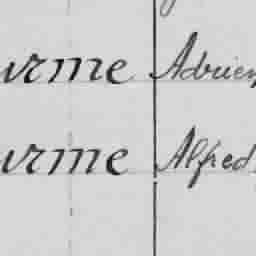 urme Adrien
urme Alfred